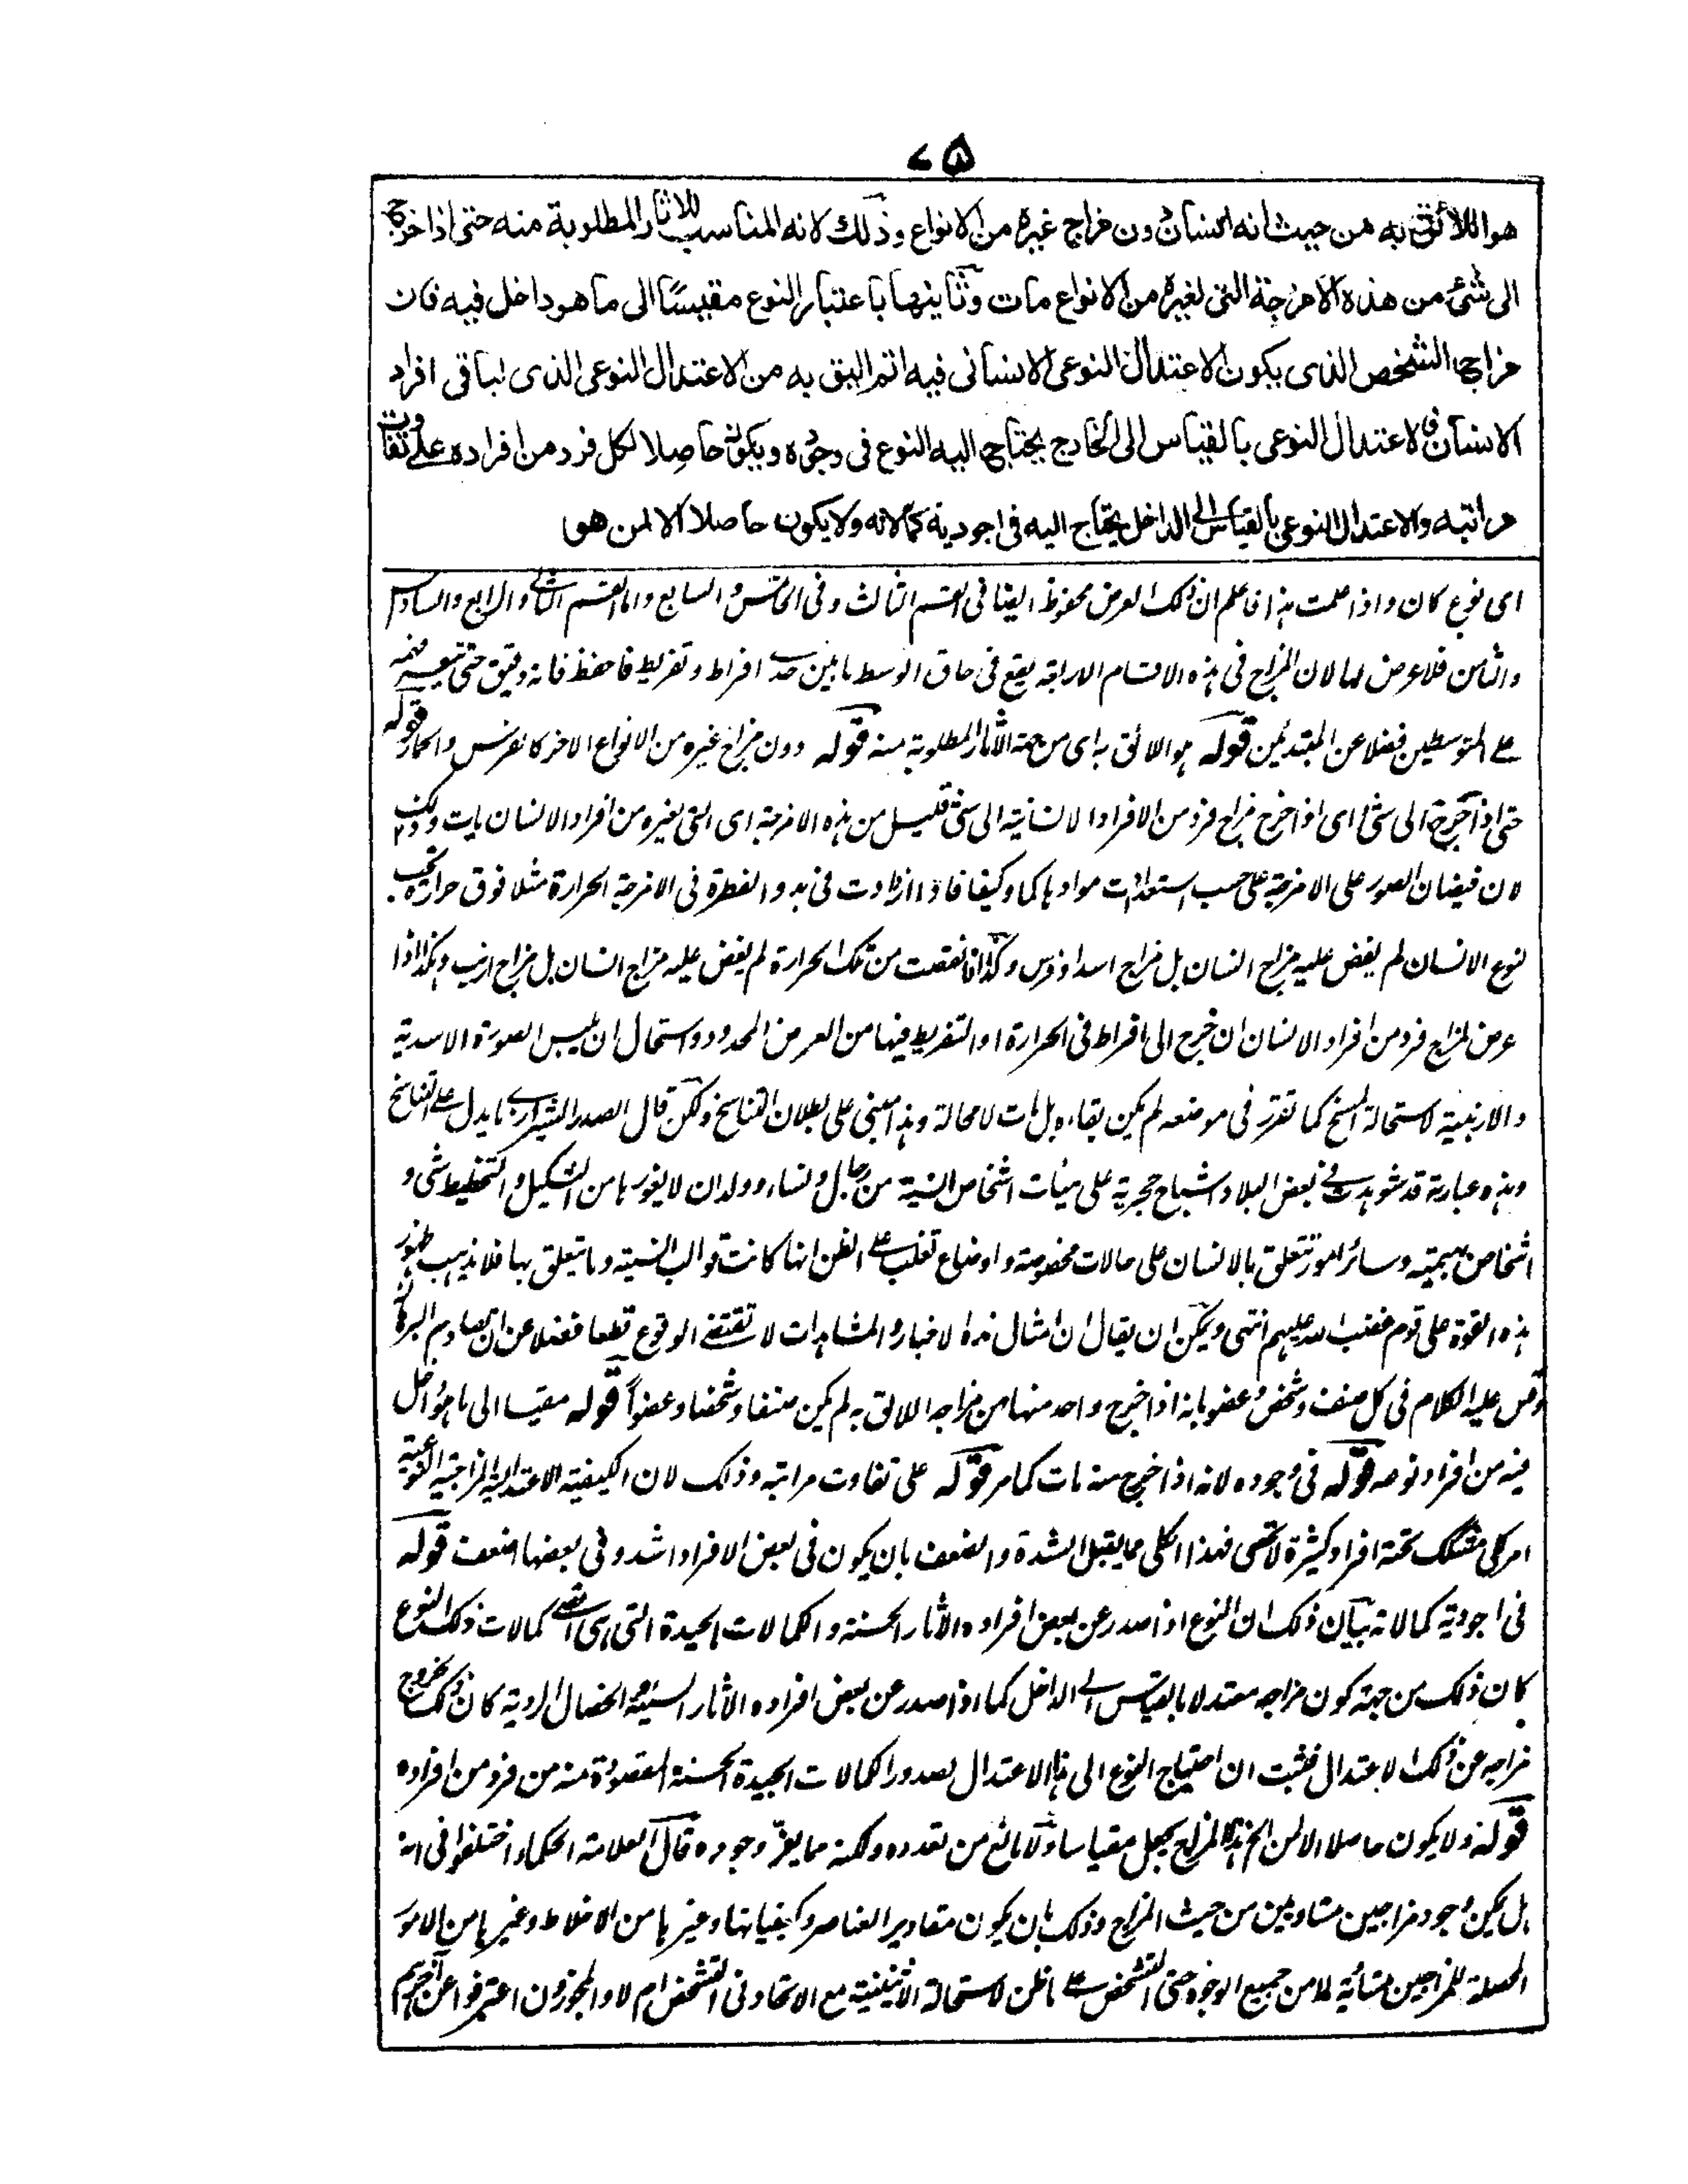 ٥٧
هو اللائق به من حيث انه انسان دون مزاج غيره من الانواع وذلك لانه المناسب للاثار المطلوبة منه حتى اذا خرج
الى شئ من هذه الامزجة التى لغيره من الانواع مات وثانيها باعتبار النوع مقيسًا الى ما هو داخل فيه فان
مزاج الشخص الذى يكون الاعتدال النوعى الانسانى فيه اتم اليق به من الاعتدال النوعى الذى لباقى افراد
الانسان فالاعتدال النوعى بالقياس الى الخارج يحتاج اليه النوع فى وجوده ويكون حاصلا لكل فرد من افراده على تفاوت
مراتبه والاعتدال النوعى بالقياس الى الداخل يحتاج اليه فى اجودية كمالاته ولا يكون حاصلا الا لمن هو
اى نوع كان واذا علمت هذا فاعلم ان ذلك العرض محفوظ ايضا فى القسم الثالث وفى الخامس والسابع واما القسم الثانى والرابع والسادس
والثامن فلا عرض لها لان المزاج فى هذه الاقسام الاربعة يقع فى حاق الوسط ما بين حدى افراط وتفريط فاحفظ فانه دقيق حتى تعسر فهمه
على المتوسطين فضلا عن المبتدئين قوله هو اللائق به اى من جهة الآثار المطلوبة منه قوله دون مزاج غيره من الانواع الاخر كالفرس والحمار قوله
حتى اذا خرج الى شئ اى اذا خرج مزاج فرد من الافراد الانسانية الى شئ قليل من هذه الامزجة اى التى لغيره من افراد الانسان مات وذلك
لان فيضان الصور على الامزجة على حسب استعدادات موادها كما وكيفا فاذا ازدادت فى بدو الفطرة فى الامزجة الحرارة مثلا فوق حرارة تجب
لنوع الانسان لم يفض عليه مزاج انسان بل مزاج اسد او فرس وكذا اذا نقصت من تلك الحرارة لم يفض عليه مزاج انسان بل مزاج ارنب وهكذا اذا
عرض لمزاج فرد من افراد الانسان ان خرج الى افراط فى الحرارة او التفريط فيها من العرض المحدود واستحال ان يلبس الصورة الاسدية
والارنبية لاستحالة المسخ كما تقرر فى موضعه لم يكن بقاءه بل مات لا محالة وهذا مبنى على بطلان التناسخ ولكن قال الصدر الشيرازى ما يدل على التناسخ
وهذه عبارته قد شوهدت فى بعض البلاد اشباح حجرية على هيأت اشخاص انسية من رجال ونساء وولدان لا يغورها من التشكيل والتخطيط شى و
اشخاص بهيمية وسائر امور تتعلق بالانسان على حالات مخصوصة واوضاع تغلب على الظن انها كانت قوالب انسية وما يتعلق بها فلا يذهب ظهور
هذه القوة على قوم غضب الله عليهم انتهى ويمكن ان يقال ان امثال هذه الاخبار والمشاهدات لا تقتضى الوقوع قطعا فضلا عن ان تصادم البرهان
وقس عليه الكلام فى كل صنف وشخص وعضو بانه اذا خرج واحد منها من مزاجه اللائق به لم يكن صنفا وشخصا وعضواً قوله مقيسا الى ما هو داخل
فيه من افراد نوعه قوله فى وجوده لانه اذا خرج منه مات كما مر قوله على تفاوت مراتبه وذلك لان الكيفية الاعتدالية المزاجية النوعية
امر كلى مشكك تحته افراد كثيرة لا تحصى فهذا الكلى مما يقبل الشدة والضعف بان يكون فى بعض الافراد اشد وفى بعضها اضعف قوله
فى اجودية كمالاته بيان ذلك ان النوع اذا صدر عن بعض افراده الآثار الحسنة والكمالات الجيدة التى هى اقصى كمالات ذلك النوع
كان ذلك من جهة كون مزاجه معتدلا بالقياس الى الداخل كما اذا صدر عن بعض افراده الآثار السيئة والخصال الردية كان ذلك لخروج
مزاجه عن ذلك الاعتدال فثبت ان احتياج النوع الى هذا الاعتدال لصدور الكمالات الجيدة الحسنة المقصودة منه من فرد من افراده
قوله ولا يكون حاصلا الا لمن الخ هذا المزاج يجعل مقياسا ولا مانع من تعدده ولكنه مما يعزّ وجوده قال العلامة الحكماء اختلفوا فى انه
هل يمكن وجود مزاجين متساويين من حيث المزاج وذلك بان يكون مقادير العناصر وكيفياتها وغيرها من الاخلاط وغيرها من الامور
المحصلة للمزاجين متشابهة لا من جميع الوجوه حتى التشخص على ما ظن لاستحالة الاثنينية مع الاتحاد فى التشخص ام لا والمجوزون اعترفوا عن آخرهم